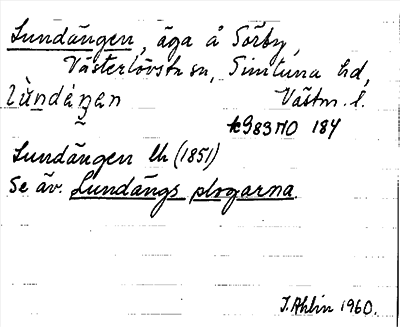 Lundängen, äga å Sörby,
Västerlövsta sn, Simtuna hd,
lùndáŋen Västm. l.
k983110 184
Lundängen lh (1851)
Se äv. Lundängs plogarna.
J. Ahlin 1960.